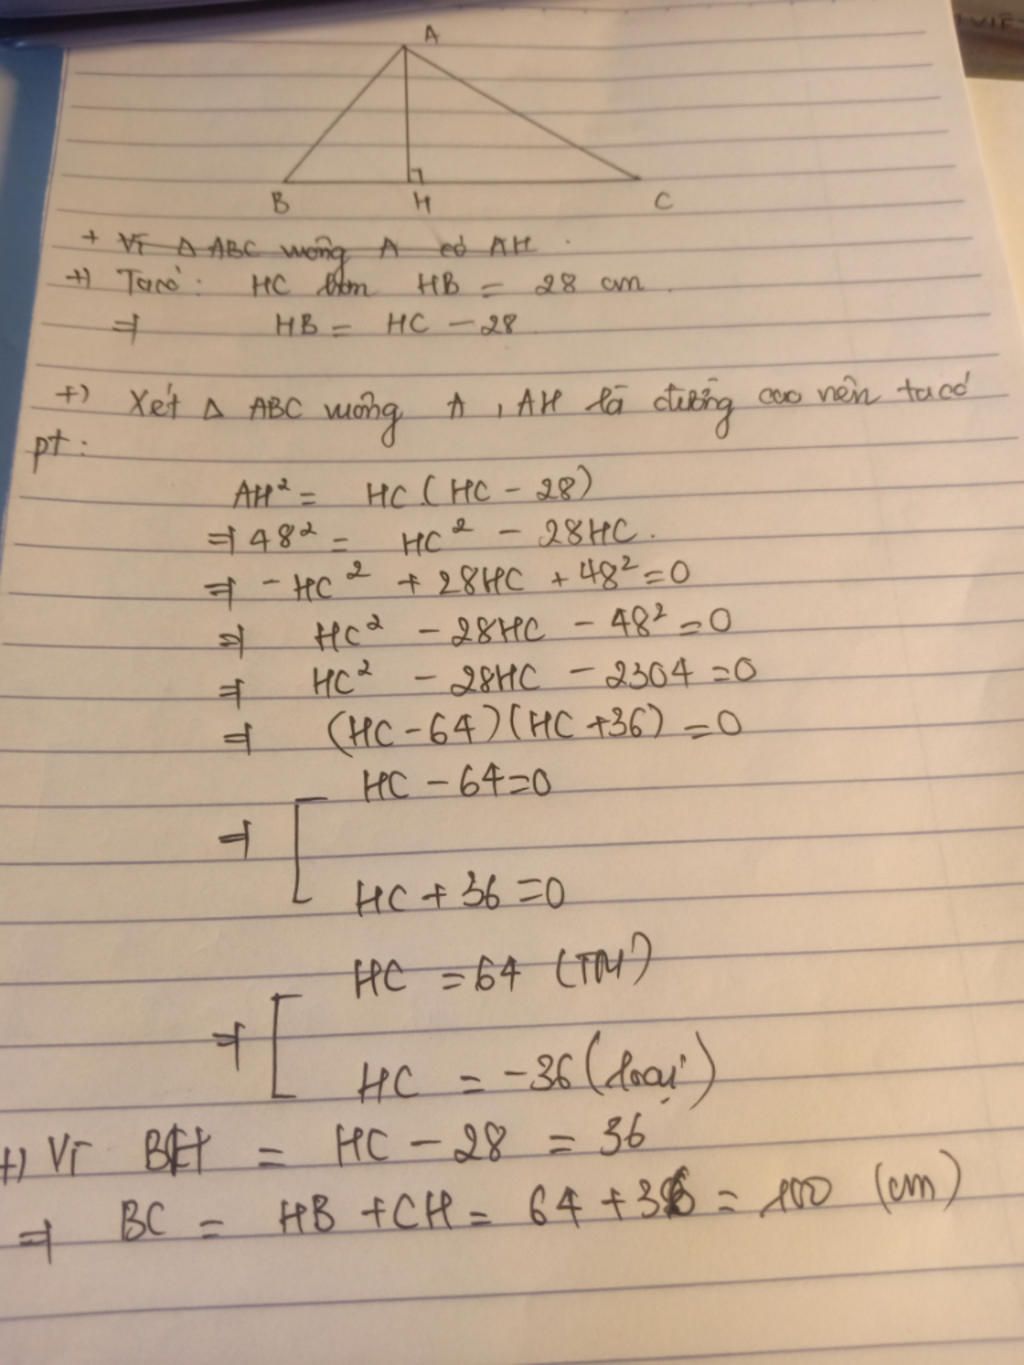 A
B H C
+ Vì Δ ABC vuông A có AH.
+) Ta có: HC lớn HB = 28 cm.
⇒ HB = HC - 28
+) Xét Δ ABC vuông A, AH là đường cao nên ta có
pt:
AH² = HC (HC - 28)
⇒ 48² = HC² - 28HC.
⇒ -HC² + 28HC + 48² = 0
⇒ HC² - 28HC - 48² = 0
⇒ HC² - 28HC - 2304 = 0
⇒ (HC - 64)(HC + 36) = 0
HC - 64 = 0
⇒ [
HC + 36 = 0
HC = 64 (TM)
⇒ [
HC = -36 (loại)
+) Vì BH = HC - 28 = 36
⇒ BC = HB + CH = 64 + 36 = 100 (cm)